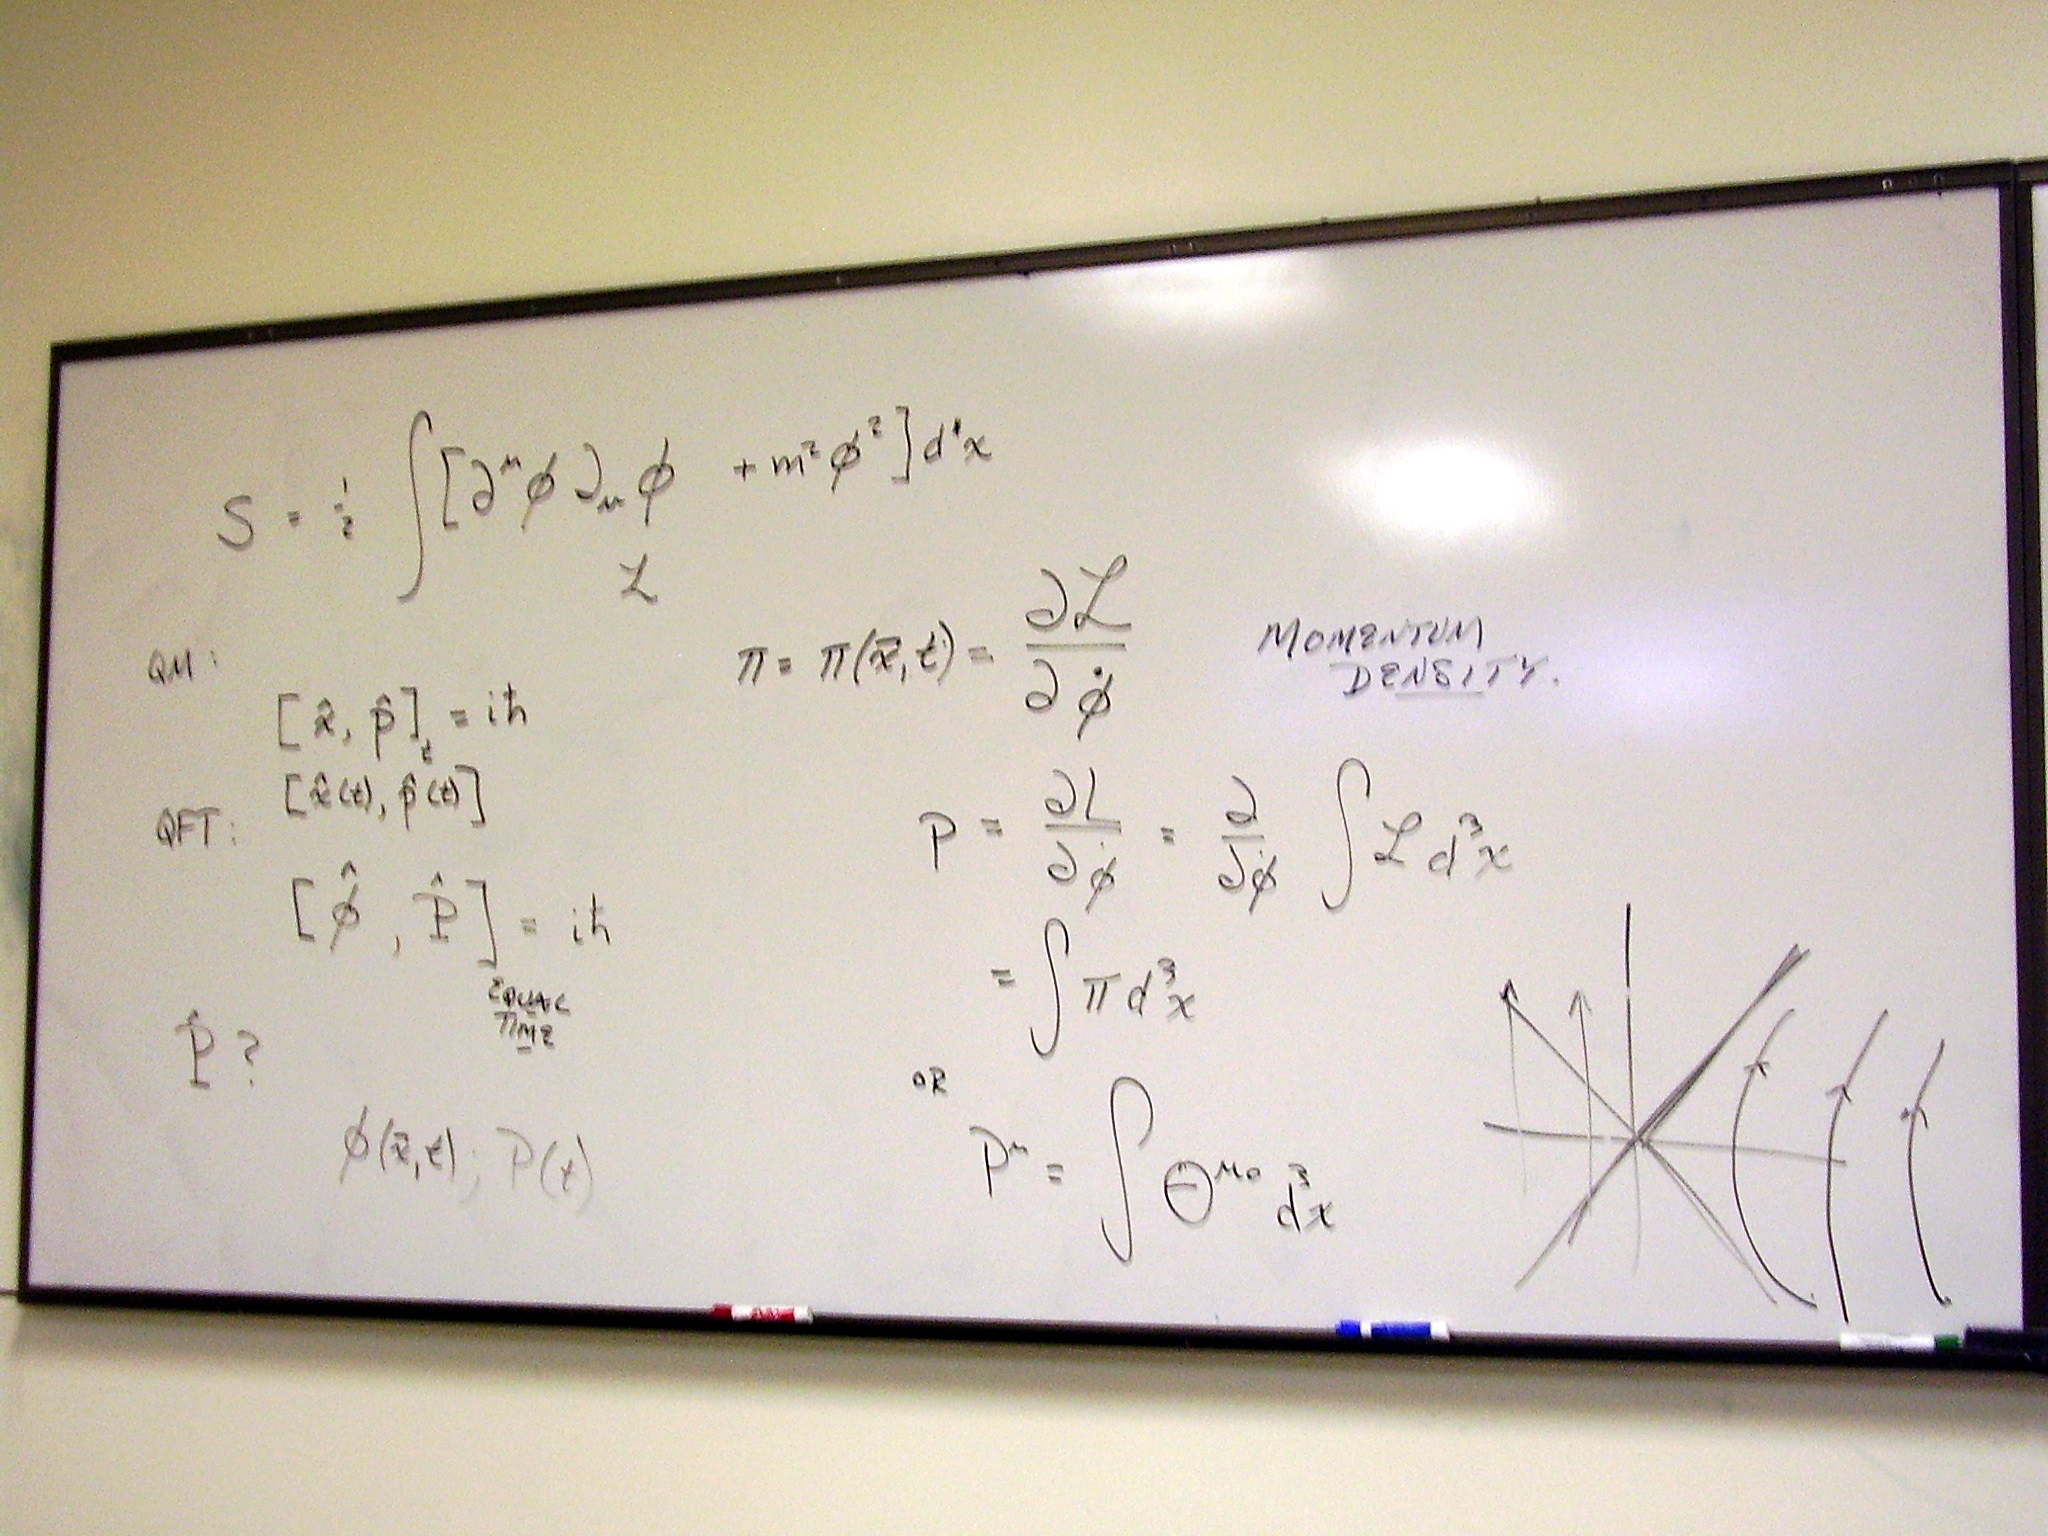 S = ½ ∫ [∂^μ φ ∂_μ φ + m² φ²] d⁴x
ℒ
QM:
[x̂, p̂]_t = iħ
[x̂(t), p̂(t)]
QFT:
[φ̂, P̂] = iħ
EQUAL
TIME
P̂ ?
φ(x⃗,t); P(t)
π = π(x⃗,t) = ∂ℒ/∂φ̇
MOMENTUM
DENSITY.
P = ∂L/∂φ̇ = ∂/∂φ̇ ∫ ℒ d³x
= ∫ π d³x
OR
P^μ = ∫ Θ^μ0 d³x